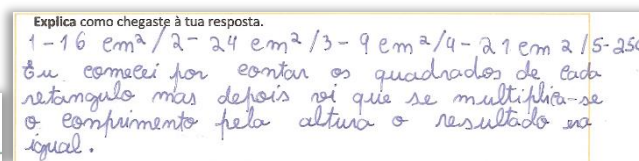 Explica como chegaste à tua resposta.
1-16 cm²/2-24 cm²/3-9cm²/4-21cm 2/5-25c
Eu comecei por contar os quadrados de cada
retangulo mas depois vi que se multiplica-se
o comprimento pela altura o resultado era
igual.